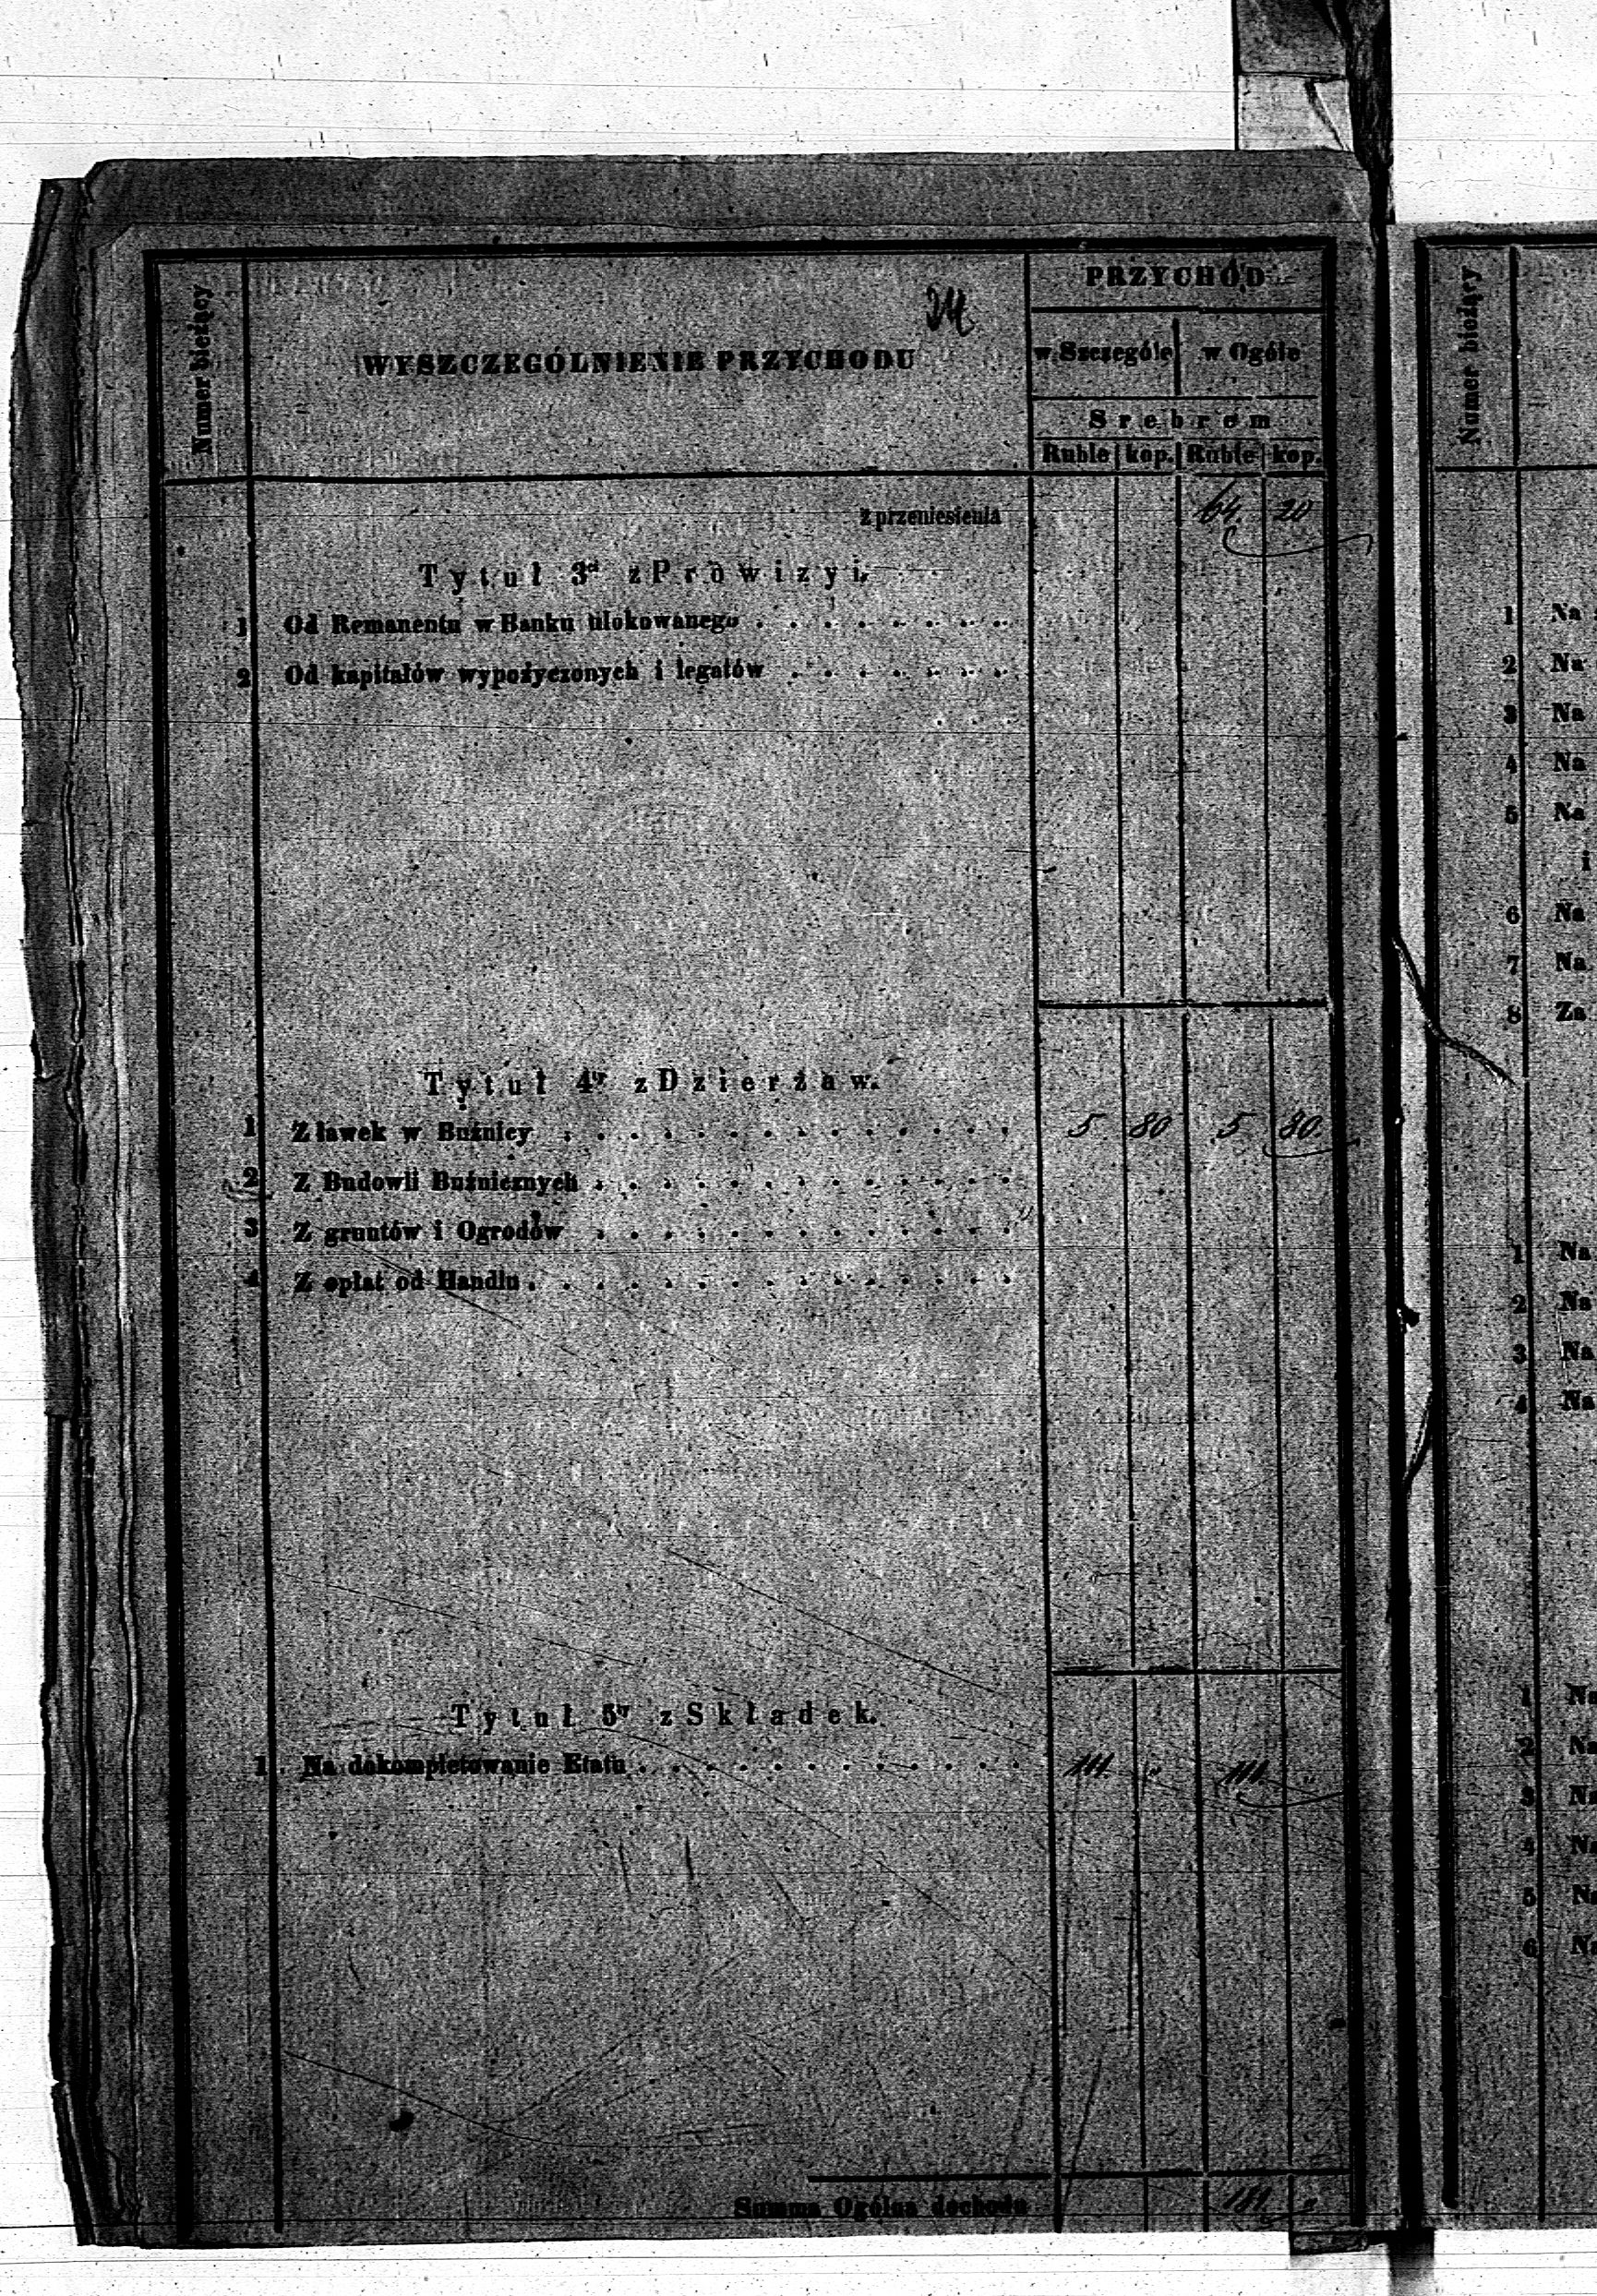 Numer bieżący
WYSZCZEGÓLNIENIE PRZYCHODU
PRZYCHÓD
w Szczególe w Ogóle
Srebrem
Ruble kop. Ruble kop.
z przeniesienia 64 20
Tytuł 3ci z Prowizyi.
1 Od Remanentu w Banku ulokowanego
2 Od kapitałów wypożyczonych i legatów
Tytuł 4ty z Dzierżaw.
1 Z ławek w Buźnicy 5 80 5 80
2 Z Budowli Buźnicznych
3 Z gruntów i Ogrodów
4 Z opłat od Handlu
Tytuł 5ty z Składek.
1 Na dokompletowanie Etatu 111 " 111 "
Summa Ogólna dochodu 181 "
Numer bieżący
1 Na
2 Na
3 Na
4 Na
5 Na
i
6 Na
7 Na
8 Za
1 Na
2 Na
3 Na
4 Na
1 Na
2 Na
3 Na
4 Na
5 Na
6 Na